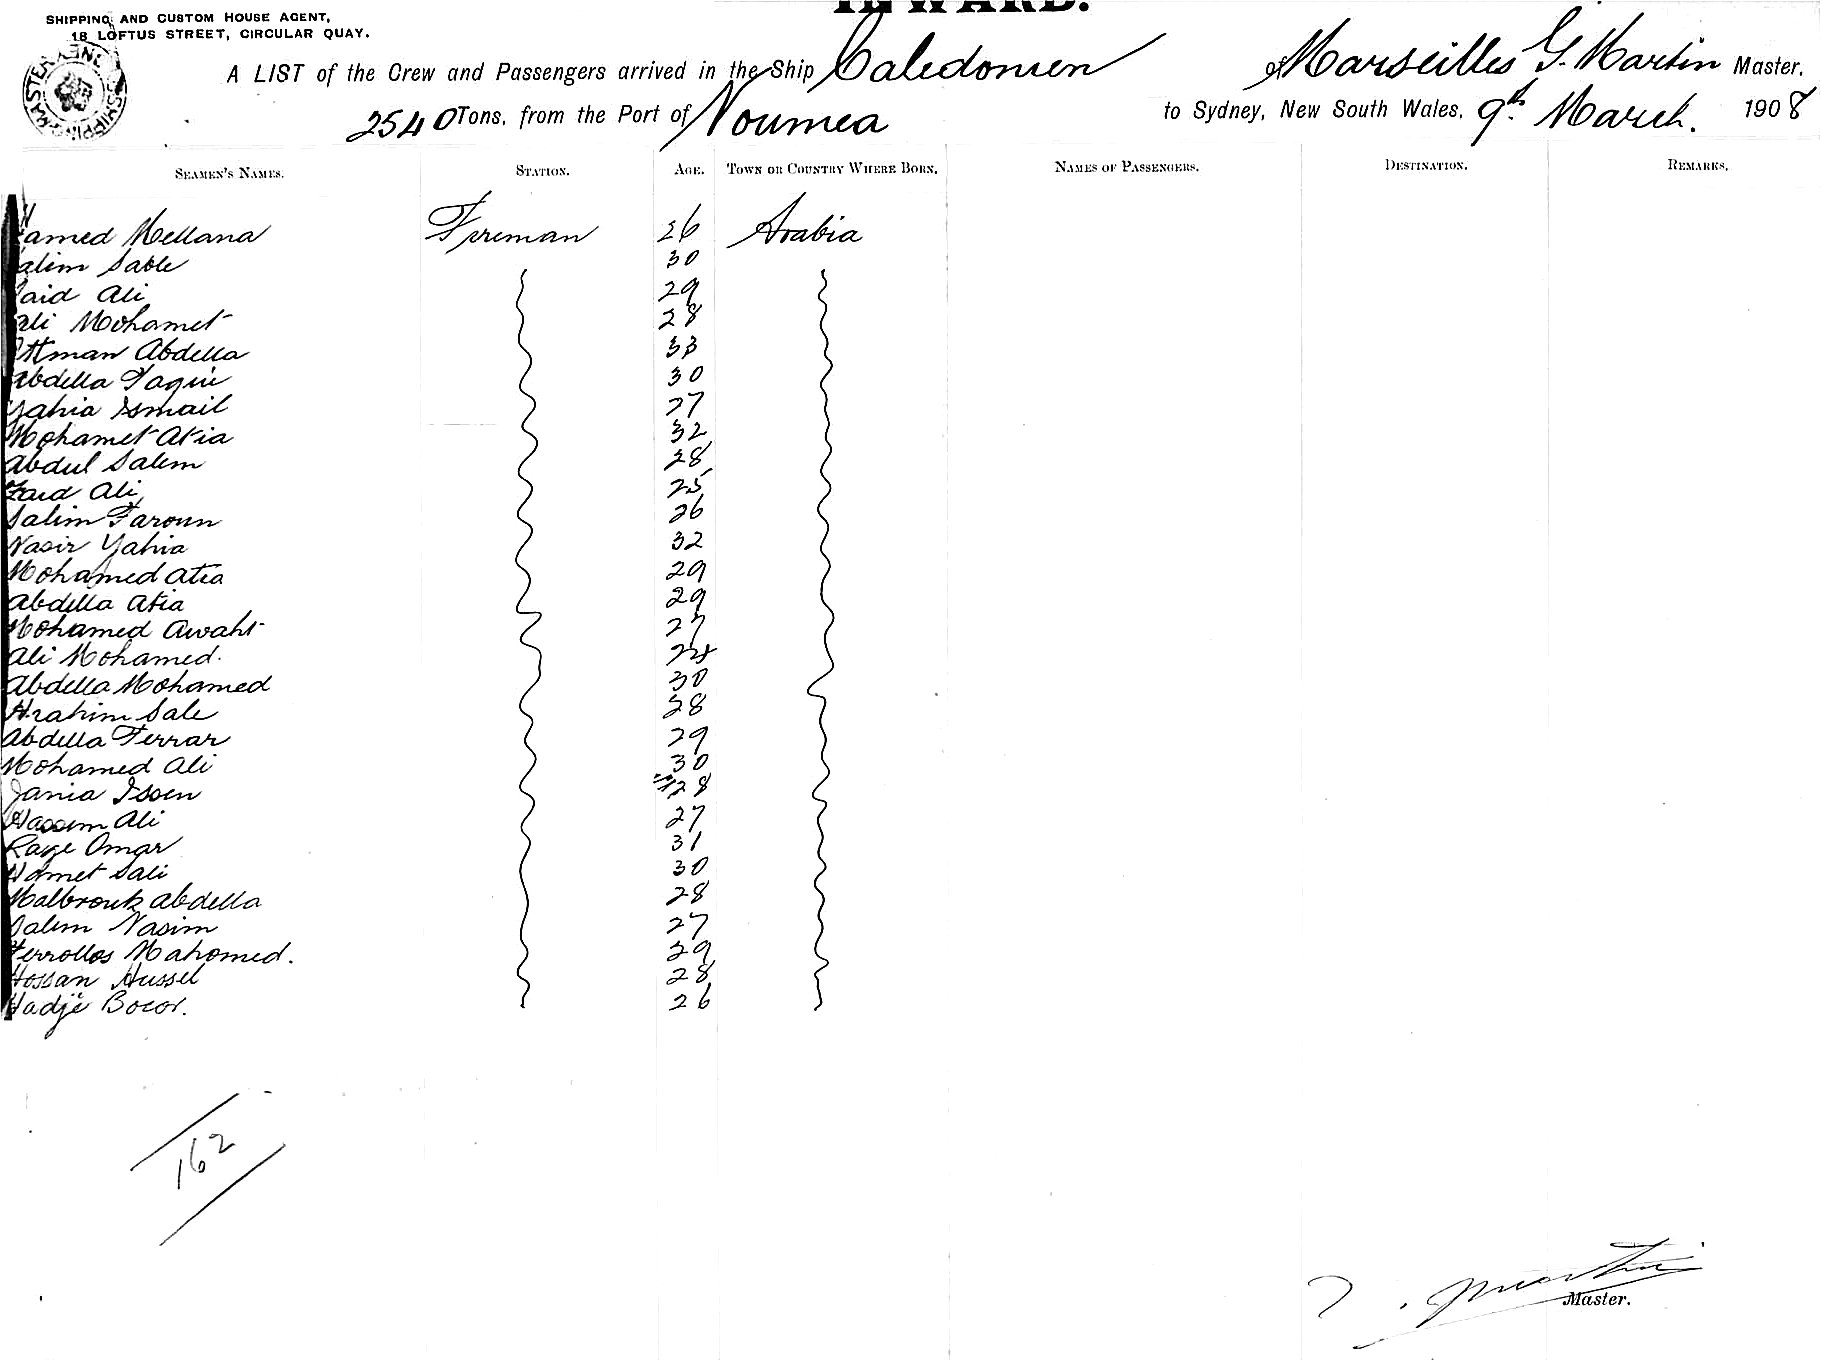 INWARD.
SHIPPING AND CUSTOM HOUSE AGENT,
18 LOFTUS STREET, CIRCULAR QUAY.
SHIPPING MASTER
A LIST of the Crew and Passengers arrived in the Ship Caledonien of Marseilles G. Martin Master,
2540 Tons, from the Port of Noumea to Sydney, New South Wales, 9th March. 1908
SEAMEN'S NAMES. STATION. AGE. TOWN OR COUNTRY WHERE BORN. NAMES OF PASSENGERS. DESTINATION. REMARKS.
Hamed Mellana Fireman 26 Arabia
Salim Sable 30
Said Ali 29
Ali Mohamet 28
Ottman Abdella 33
Abdella Taquie 30
Yahia Ismail 27
Mohamet Atia 32
Abdul Salem 28
Zaid Ali 25
Salim Faroun 26
Nasir Yahia 32
Mohamed Atia 29
Abdella Atia 29
Mohamed Awaht 27
Ali Mohamed. 28
Abdella Mohamed 30
Hrahim Sale 28
Abdella Ferrar 29
Mohamed Ali 30
Jania Issen 28
Hassem Ali 27
Rage Omar 31
Hamet Sali 30
Malbrouk Abdella 28
Salem Nasim 27
Ferrollos Mahomed. 29
Hossan Hussel 28
Hadje Bocor. 26
162
Martin
Master.